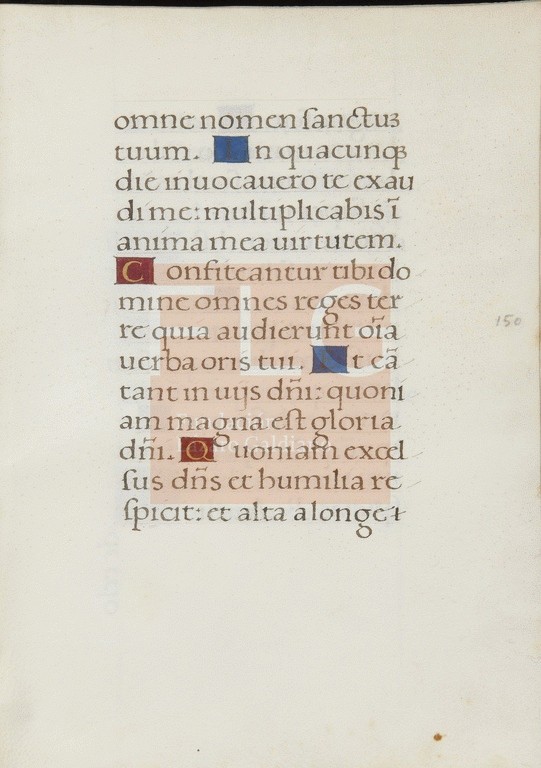 omne nomen ſanctuꝫ
tuum. In quacunqꝫ
die inuocauero te exau
di me: multiplicabis ī
anima mea uirtutem.
Confiteantur tibi do
mine omnes reges ter
re quia audierunt oīa
uerba oris tui. Et cā
tant in uijs dn̄i: quoni
am magna eſt gloria
dn̄i. Quoniam excel
ſus dn̄s et humilia re
ſpicit: et alta a longe
150